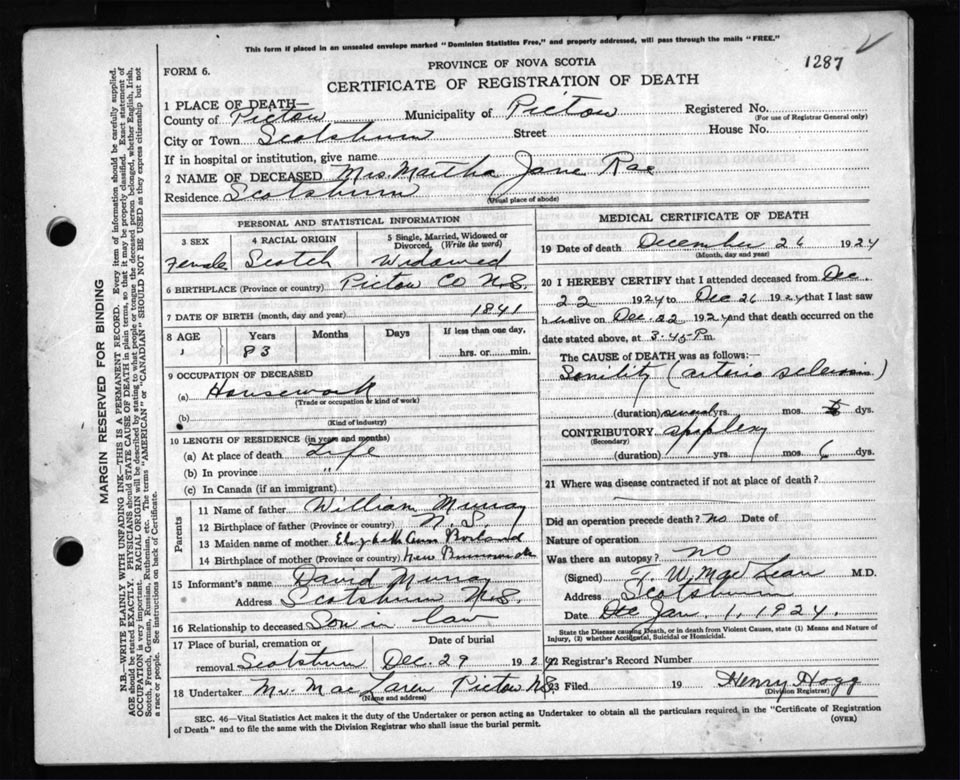 This form if placed in an unsealed envelope marked "Dominion Statistics Free," and properly addressed, will pass through the mails "FREE."
1287
PROVINCE OF NOVA SCOTIA
FORM 6.
CERTIFICATE OF REGISTRATION OF DEATH
1 PLACE OF DEATH—
County of Pictou Municipality of Pictou Registered No.
(For use of Registrar General only)
City or Town Scotsburn Street House No.
If in hospital or institution, give name
2 NAME OF DECEASED Mrs. Martha Jane Rae
Residence Scotsburn
(Usual place of abode)
PERSONAL AND STATISTICAL INFORMATION
3 SEX 4 RACIAL ORIGIN 5 Single, Married, Widowed or Divorced. (Write the word)
Female Scotch Widowed
6 BIRTHPLACE (Province or country) Pictou Co N.S.
7 DATE OF BIRTH (month, day and year) 1841
8 AGE Years Months Days If less than one day,
83 hrs. or min.
9 OCCUPATION OF DECEASED
(a) Housework
(Trade or occupation or kind of work)
(b)
(Kind of industry)
10 LENGTH OF RESIDENCE (in years and months)
(a) At place of death Life
(b) In province "
(c) In Canada (if an immigrant)
Parents
11 Name of father William Murray
12 Birthplace of father (Province or country) N.S.
13 Maiden name of mother Elizabeth Ann
14 Birthplace of mother (Province or country) New Brunswick
15 Informant's name David Murray
Address Scotsburn N.S.
16 Relationship to deceased Son in law
17 Place of burial, cremation or removal Scotsburn Date of burial Dec. 29 1924
18 Undertaker Mr. MacLaren Pictou N.S.
(Name and address)
MEDICAL CERTIFICATE OF DEATH
19 Date of death December 26 1924
(Month, day and year)
20 I HEREBY CERTIFY that I attended deceased from Dec.
22 1924 to Dec 26 1924 that I last saw
her alive on Dec. 22 1924 and that death occurred on the
date stated above, at 3.45 P m.
The CAUSE of DEATH was as follows:—
Senility (arterio sclerosis)
(duration) several yrs. mos. dys.
CONTRIBUTORY apoplexy
(Secondary)
(duration) yrs. mos. 6 dys.
21 Where was disease contracted if not at place of death?
Did an operation precede death? No Date of
Nature of operation
Was there an autopsy? no
(Signed) W. MacLean M.D.
Address Scotsburn
Date Jan. 1, 1924.
State the Disease causing Death, or in death from Violent Causes, state (1) Means and Nature of Injury, (2) whether Accidental, Suicidal or Homicidal.
22 Registrar's Record Number
23 Filed 19 Henry Hogg
(Division Registrar)
SEC. 46—Vital Statistics Act makes it the duty of the Undertaker or person acting as Undertaker to obtain all the particulars required in the "Certificate of Registration
of Death" and to file the same with the Division Registrar who shall issue the burial permit.
(OVER)
MARGIN RESERVED FOR BINDING
N.B.—WRITE PLAINLY WITH UNFADING INK—THIS IS A PERMANENT RECORD. Every item of information should be carefully supplied.
AGE should be stated EXACTLY. PHYSICIANS should STATE CAUSE OF DEATH in plain terms, so that it may be properly classified. Exact statement of
OCCUPATION is very important. RACIAL ORIGIN will be described by stating to what people or tongue the deceased person belonged, whether English, Irish,
Scotch, French, German, Russian, Ruthenian, etc. The terms "AMERICAN" or "CANADIAN" SHOULD NOT BE USED as they express citizenship but not
a race or people. See instructions on back of Certificate.